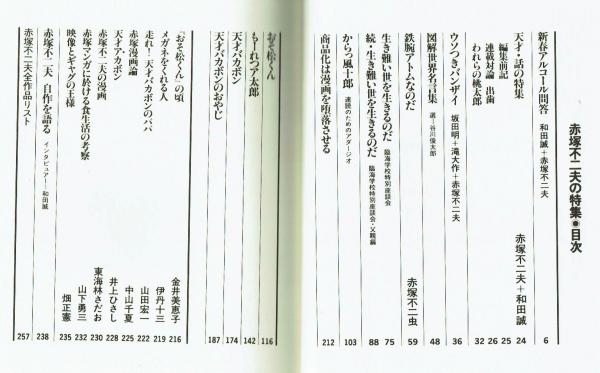 赤塚不二夫の特集●目次
新春アルコール問答 和田誠+赤塚不二夫 6
天才・話の特集 赤塚不二夫+和田誠 24
編集前記 25
連載対論 出歯 26
われらの桃太郎 32
ウソつきバンザイ 坂田明+滝大作+赤塚不二夫 36
図解世界名言集 選=谷川俊太郎 48
鉄腕アトムなのだ 赤塚不二虫 59
生き難い世を生きるのだ 臨海学校特別座談会 75
続・生き難い世を生きるのだ 臨海学校特別座談会・父親編 88
からっ風十郎 速読のためのアダージオ 103
商品化は漫画を堕落させる 212
おそ松くん 116
もーれつア太郎 142
天才バカボン 174
天才バカボンのおやじ 187
「おそ松くん」の頃 金井美恵子 216
メガネをくれる人 伊丹十三 219
走れ!天才バカボンのパパ 山田宏一 222
赤塚漫画論 中山千夏 225
天才アカボン 井上ひさし 228
赤塚不二夫の漫画 東海林さだお 230
赤塚マンガに於ける食生活の考察 山下勇三 232
映像とギャグの王様 畑正憲 235
赤塚不二夫 自作を語る インタビュアー=和田誠 238
赤塚不二夫全作品リスト 257